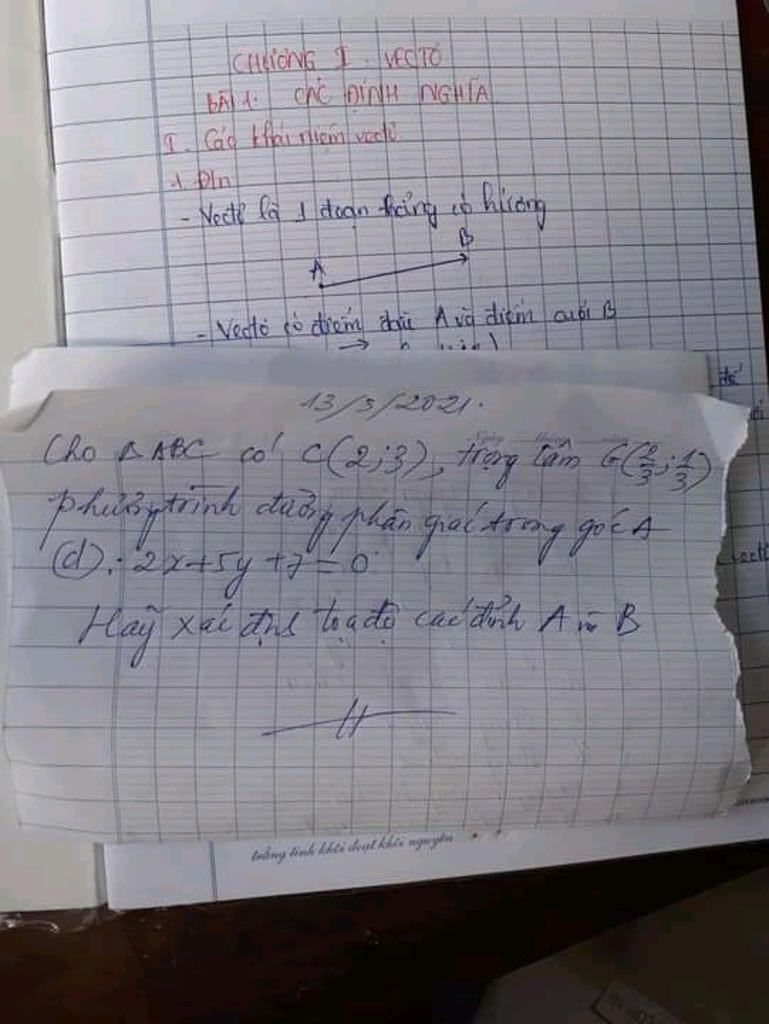 CHƯƠNG I. VECTƠ
BÀI 1: CÁC ĐỊNH NGHĨA
I. Các khái niệm vectơ
1. Đ/n
- Vectơ là 1 đoạn thẳng có hướng
A B
- Vectơ có điểm đầu A và điểm cuối B
13/3/2021.
Cho Δ ABC có C(2;3), trọng tâm G(2/3;1/3)
phương trình đường phân giác trong góc A
(d): 2x+5y+7=0
Hãy xác định tọa độ các đỉnh A và B
trắng tinh khôi đoạt khôi nguyên